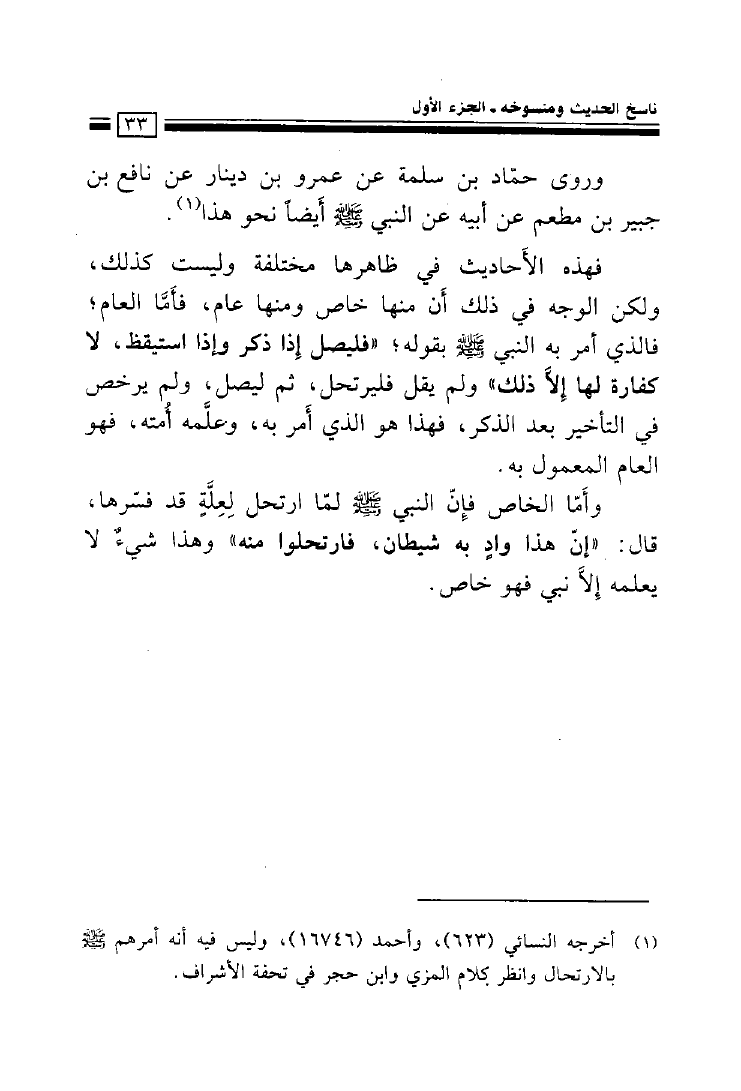 ناسخ الحديث ومنسوخه ـ الجزء الأول
٣٣
وروى حمّاد بن سلمة عن عمرو بن دينار عن نافع بن
جبير بن مطعم عن أبيه عن النبي ﷺ أَيضاً نحو هذا(١).
فهذه الأَحاديث في ظاهرها مختلفة وليست كذلك،
ولكن الوجه في ذلك أَن منها خاص ومنها عام، فأَمَّا العام؛
فالذي أمر به النبي ﷺ بقوله؛ «فليصل إِذا ذكر وإِذا استيقظ، لا
كفارة لها إِلاَّ ذلك» ولم يقل فليرتحل، ثم ليصل، ولم يرخص
في التأخير بعد الذكر، فهذا هو الذي أَمر به، وعلَّمه أُمته، فهو
العام المعمول به.
وأَمّا الخاص فإِنّ النبي ﷺ لمّا ارتحل لِعِلَّةٍ قد فسّرها،
قال: «إنّ هذا وادٍ به شيطان، فارتحلوا منه» وهذا شيءٌ لا
يعلمه إِلاَّ نبي فهو خاص.
(١) أخرجه النسائي (٦٢٣)، وأحمد (١٦٧٤٦)، وليس فيه أنه أمرهم ﷺ
بالارتحال وانظر كلام المزي وابن حجر في تحفة الأشراف.